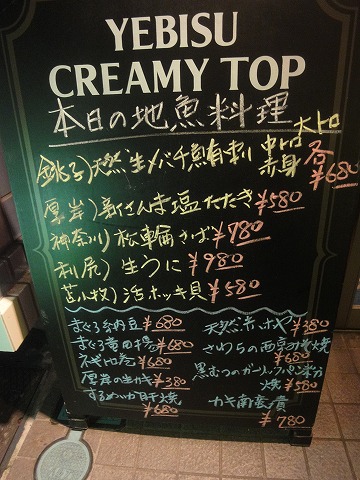 YEBISU
CREAMY TOP
本日の地魚料理
銚子)天然生メバチ鮪刺 中トロ 大トロ
赤身 各¥680
厚岸)新さんま塩たたき¥580
神奈川)松輪さば¥780
利尻)生うに¥980
苫小牧)活ホッキ貝¥580
まぐろ納豆¥680
まぐろ
¥680
ネギトロ巻¥680
厚岸の生カキ¥380
するめいか肝焼
¥680
天然ホヤ¥380
さわらの西京みそ焼
¥680
黒むつのガーリックパン粉
焼¥580
カキ南蛮漬
¥780